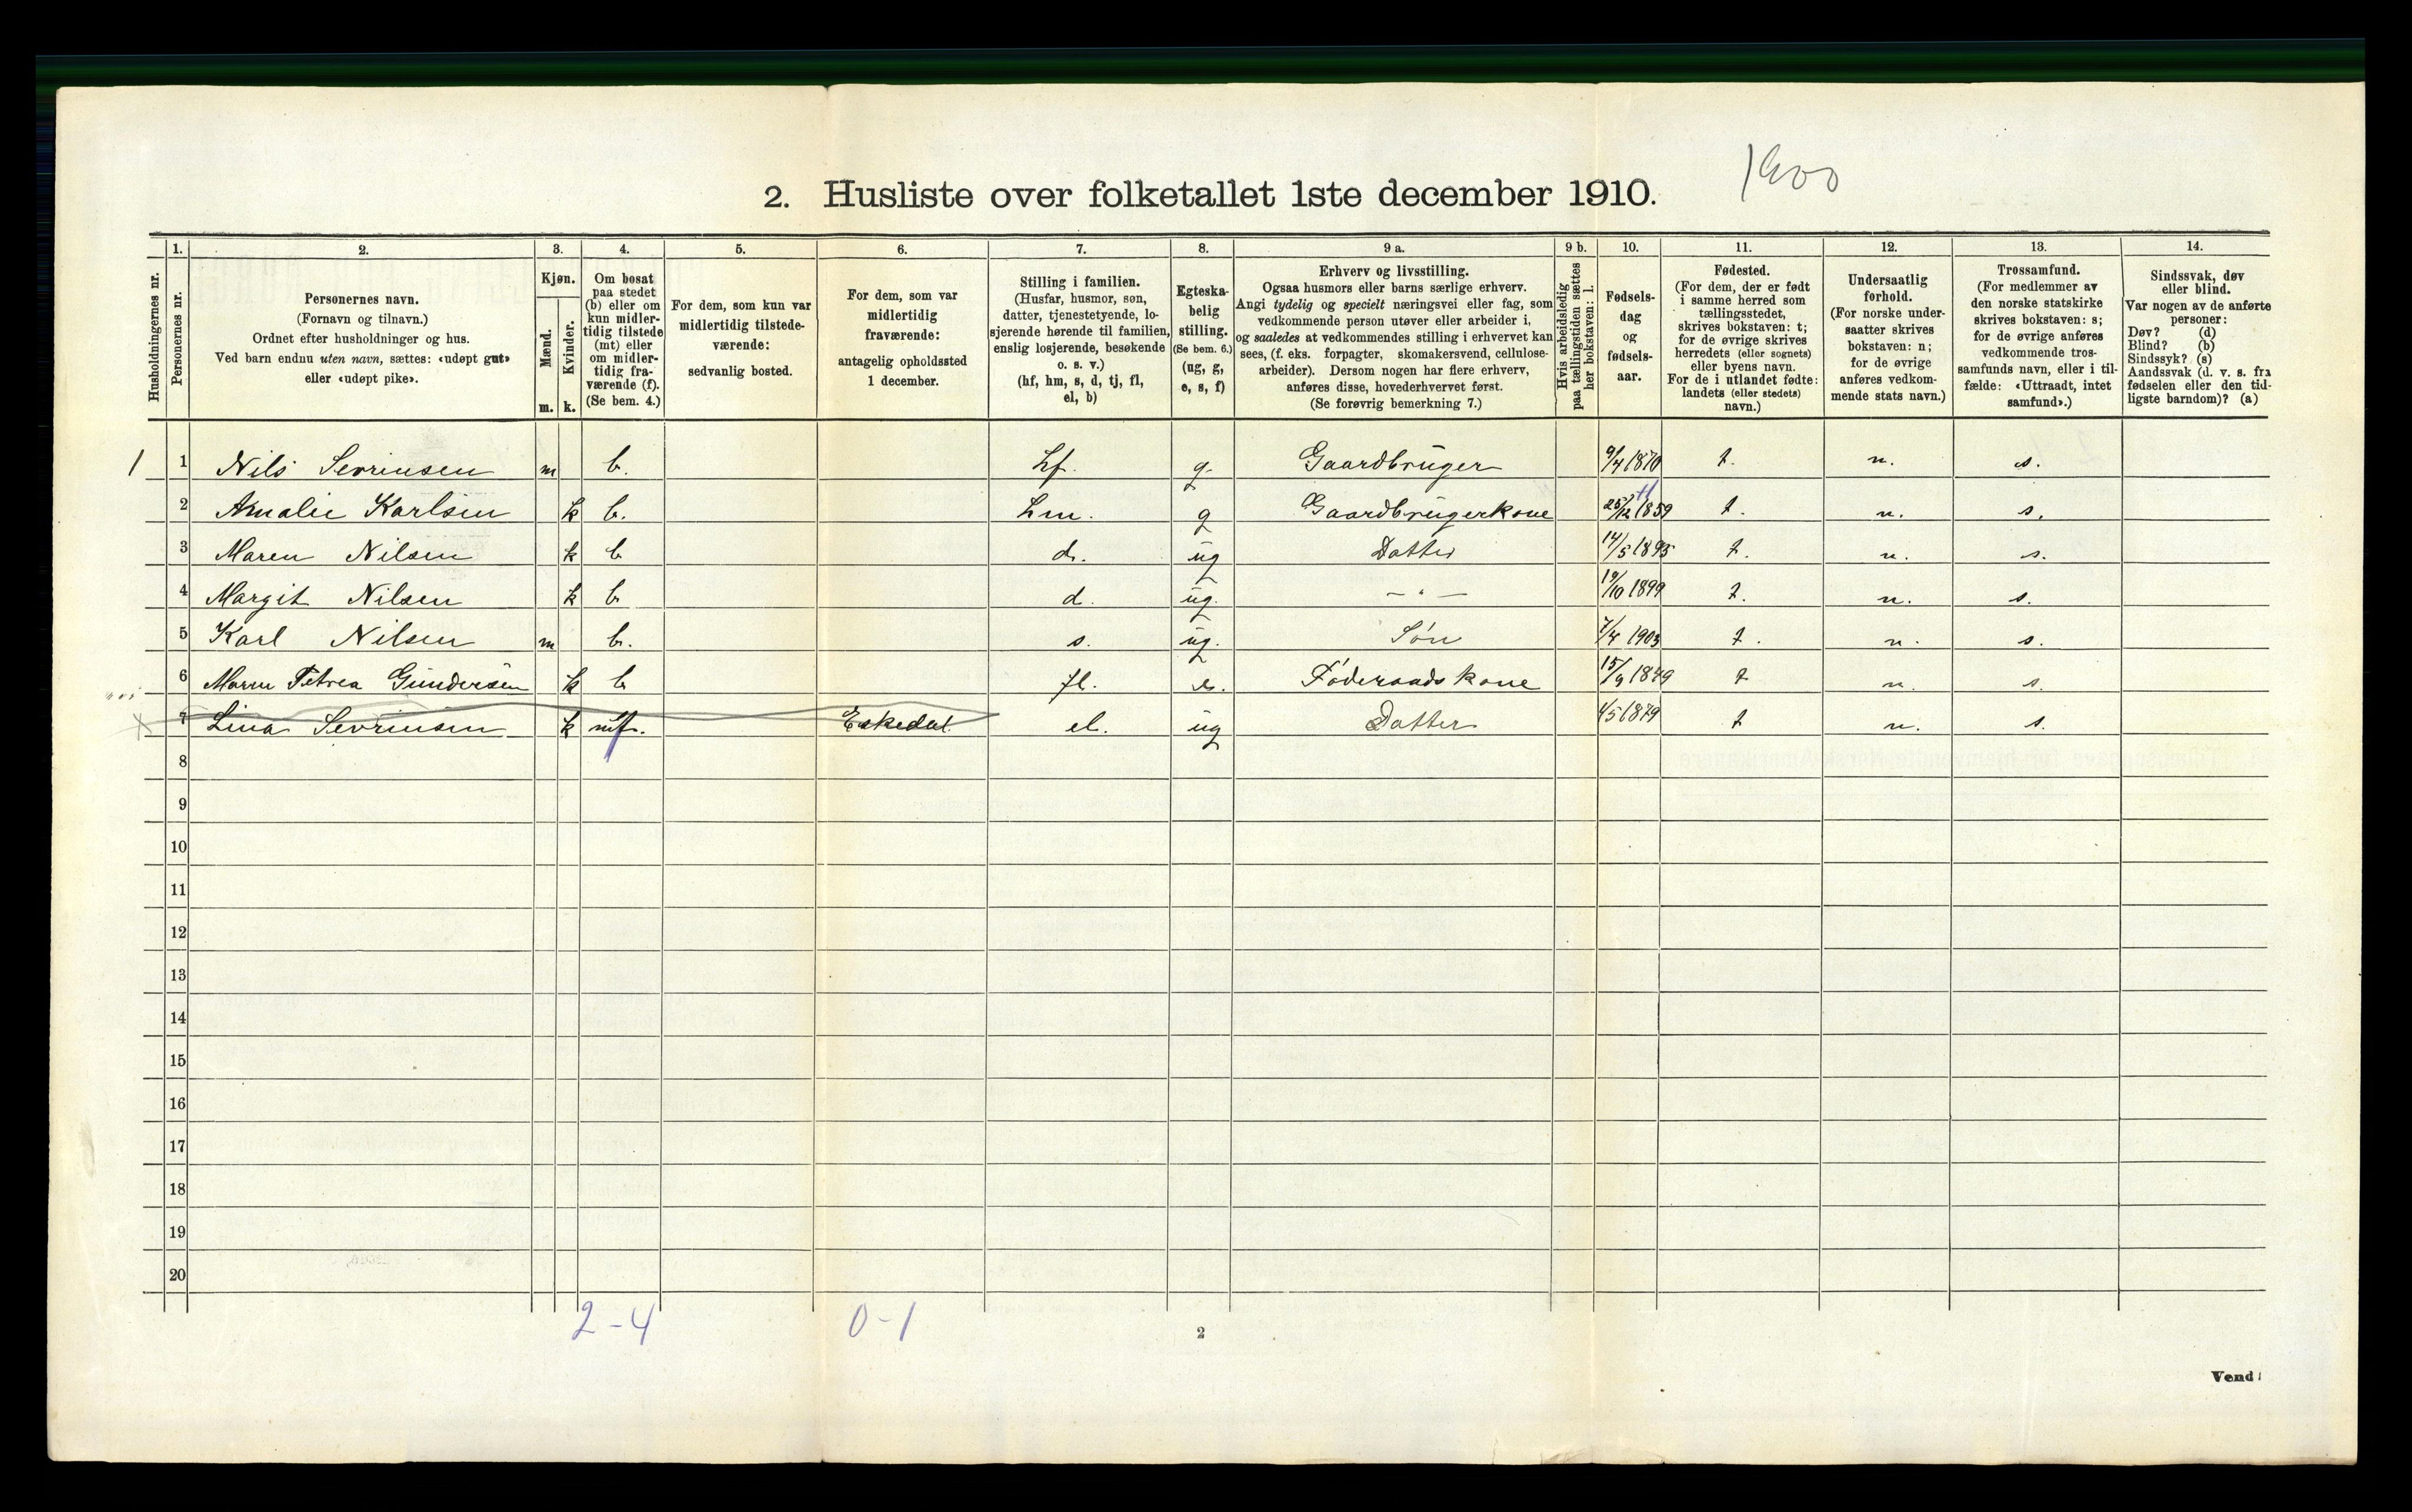 1900
2. Husliste over folketallet 1ste december 1910.
Husholdningernes nr.
1.
Personernes nr.
2.
Personernes navn.
(Fornavn og tilnavn.)
Ordnet efter husholdninger og hus.
Ved barn endnu uten navn, sættes: «udøpt gut»
eller «udøpt pike».
3.
Kjøn.
Mænd.
m.
Kvinder.
k.
4.
Om bosat
paa stedet
(b) eller om
kun midler-
tidig tilstede
(mt) eller
om midler-
tidig fra-
værende (f).
(Se bem. 4.)
5.
For dem, som kun var
midlertidig tilstede-
værende:
sedvanlig bosted.
6.
For dem, som var
midlertidig
fraværende:
antagelig opholdssted
1 december.
7.
Stilling i familien.
(Husfar, husmor, søn,
datter, tjenestetyende, lo-
sjerende hørende til familien,
enslig losjerende, besøkende
o. s. v.)
(hf, hm, s, d, tj, fl,
el, b)
8.
Egteska-
belig
stilling.
(Se bem. 6.)
(ug, g,
e, s, f)
9 a.
Erhverv og livsstilling.
Ogsaa husmors eller barns særlige erhverv.
Angi tydelig og specielt næringsvei eller fag, som
vedkommende person utøver eller arbeider i,
og saaledes at vedkommendes stilling i erhvervet kan
sees, (f. eks. forpagter, skomakersvend, cellulose-
arbeider). Dersom nogen har flere erhverv,
anføres disse, hovederhvervet først.
(Se forøvrig bemerkning 7.)
9 b.
Hvis arbeidsledig
paa tællingstiden sættes
her bokstaven: l.
10.
Fødsels-
dag
og
fødsels-
aar.
11.
Fødested.
(For dem, der er født
i samme herred som
tællingsstedet,
skrives bokstaven: t;
for de øvrige skrives
herredets (eller sognets)
eller byens navn.
For de i utlandet fødte:
landets (eller stedets)
navn.)
12.
Undersaatlig
forhold.
(For norske under-
saatter skrives
bokstaven: n;
for de øvrige
anføres vedkom-
mende stats navn.)
13.
Trossamfund.
(For medlemmer av
den norske statskirke
skrives bokstaven: s;
for de øvrige anføres
vedkommende tros-
samfunds navn, eller i til-
fælde: «Uttraadt, intet
samfund».)
14.
Sindssvak, døv
eller blind.
Var nogen av de anførte
personer:
Døv? (d)
Blind? (b)
Sindssyk? (s)
Aandssvak (d. v. s. fra
fødselen eller den tid-
ligste barndom)? (a)
1 1 Nils Sevrinsen m b. hf. g. Gaardbruger 9/4 1870 t. n. s.
2 Amalie Karlsen k b. hm. g Gaardbrugerkone 25/12 1859 t. n. s.
3 Maren Nilsen k b d. ug Datter 14/5 1895 t. n. s.
4 Margit Nilsen k b d. ug. — " — 19/10 1899 t. n. s.
5 Karl Nilsen m b. s. ug. Søn 7/4 1903 t. n. s.
6 Maren Petrea Gundersen k b fl. e. Føderaadskone 15/9 1849 t n. s.
x 7 Lina Sevrinsen k f. Eskedal. el. ug Datter 4/5 1879 t n. s.
8
9
10
11
12
13
14
15
16
17
18
19
20
2-4 0-1
2
Vend!